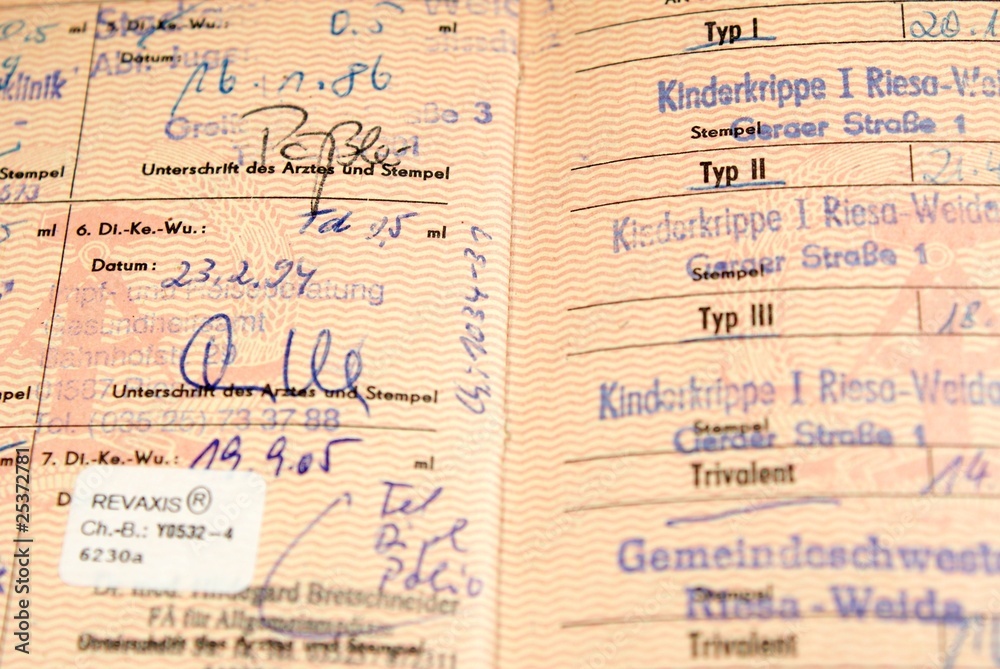 0.5 ml
5. Di.-Ke.-Wu.: 0.5 ml
Datum:
16.1.86
klinik
ße 3
Unterschrift des Arztes und Stempel
Stempel
673
ml
6. Di.-Ke.-Wu.: Td 0,5 ml
Datum: 23.2.94
Impf- und Reiseberatung
Gesundheitsamt
Bahnhofstr.
Unterschrift des Arztes und Stempel
Tel. (035 25) 73 37 88
7. Di.-Ke.-Wu.: 19.9.05 ml
REVAXIS®
Ch.-B.: Y0532-4
6230a
Tet
Dipt
Polio
Dr. med. Hildegard Bretschneider
FÄ für Allgemeinmedizin
Unterschrift des Arztes und Stempel
Typ I 20.1
Kinderkrippe I Riesa-Wei
Stempel
Geraer Straße 1
Typ II 21.4
Kinderkrippe I Riesa-Weida
Stempel
Geraer Straße 1
Typ III 18.
Kinderkrippe I Riesa-Weida
Stempel
Geraer Straße 1
Trivalent 14.
Gemeindeschwest
Stempel
Riesa-Weida
Trivalent
Adobe Stock | #25372781